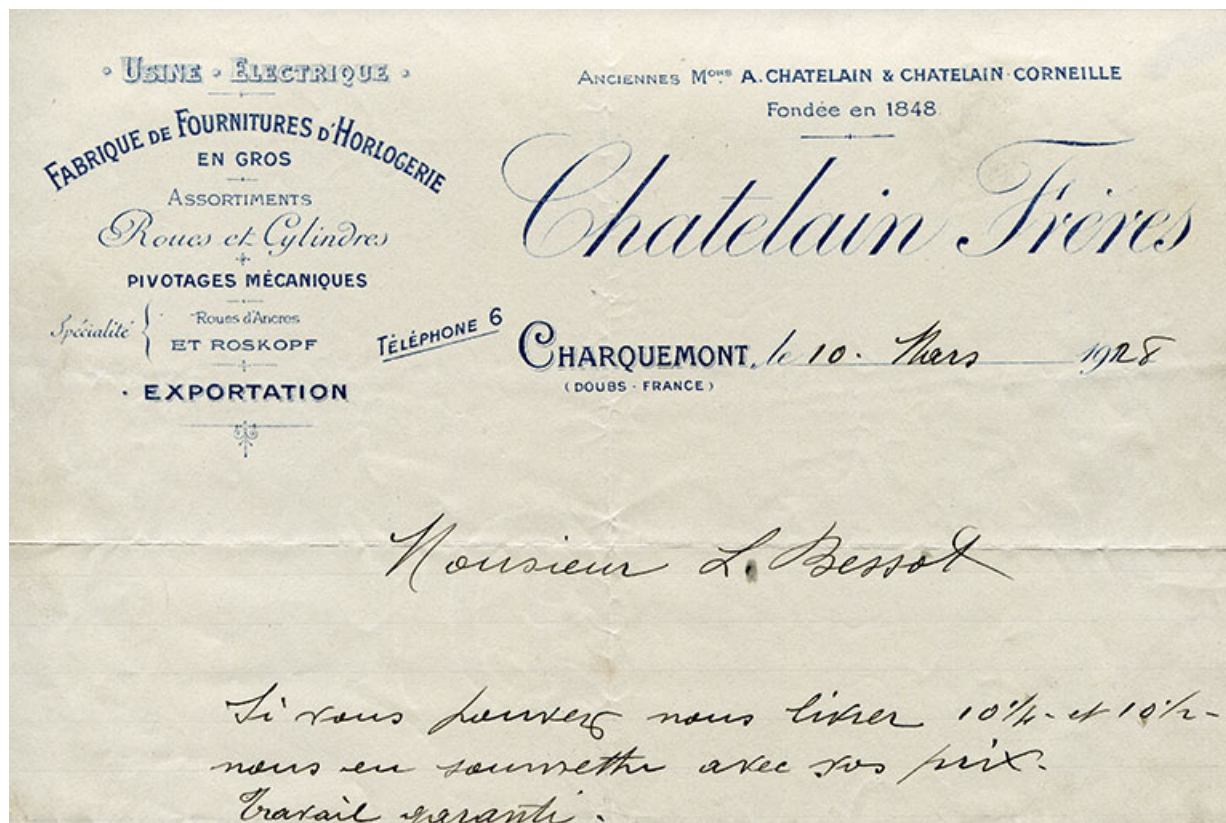 · USINE · ELECTRIQUE ·
FABRIQUE DE FOURNITURES D'HORLOGERIE
EN GROS
ASSORTIMENTS
Roues et Cylindres
PIVOTAGES MÉCANIQUES
Spécialité { Roues d'Ancres
ET ROSKOPF
· EXPORTATION
ANCIENNES MONS A. CHATELAIN & CHATELAIN-CORNEILLE
Fondée en 1848.
Chatelain Frères
TÉLÉPHONE 6
CHARQUEMONT, le 10. Mars 1928
(DOUBS - FRANCE)
Monsieur L. Bessot
Si vous pouvez nous livrer 10 1/4 - et 10 1/2 -
nous en soumettre avec vos prix.
Travail garanti.